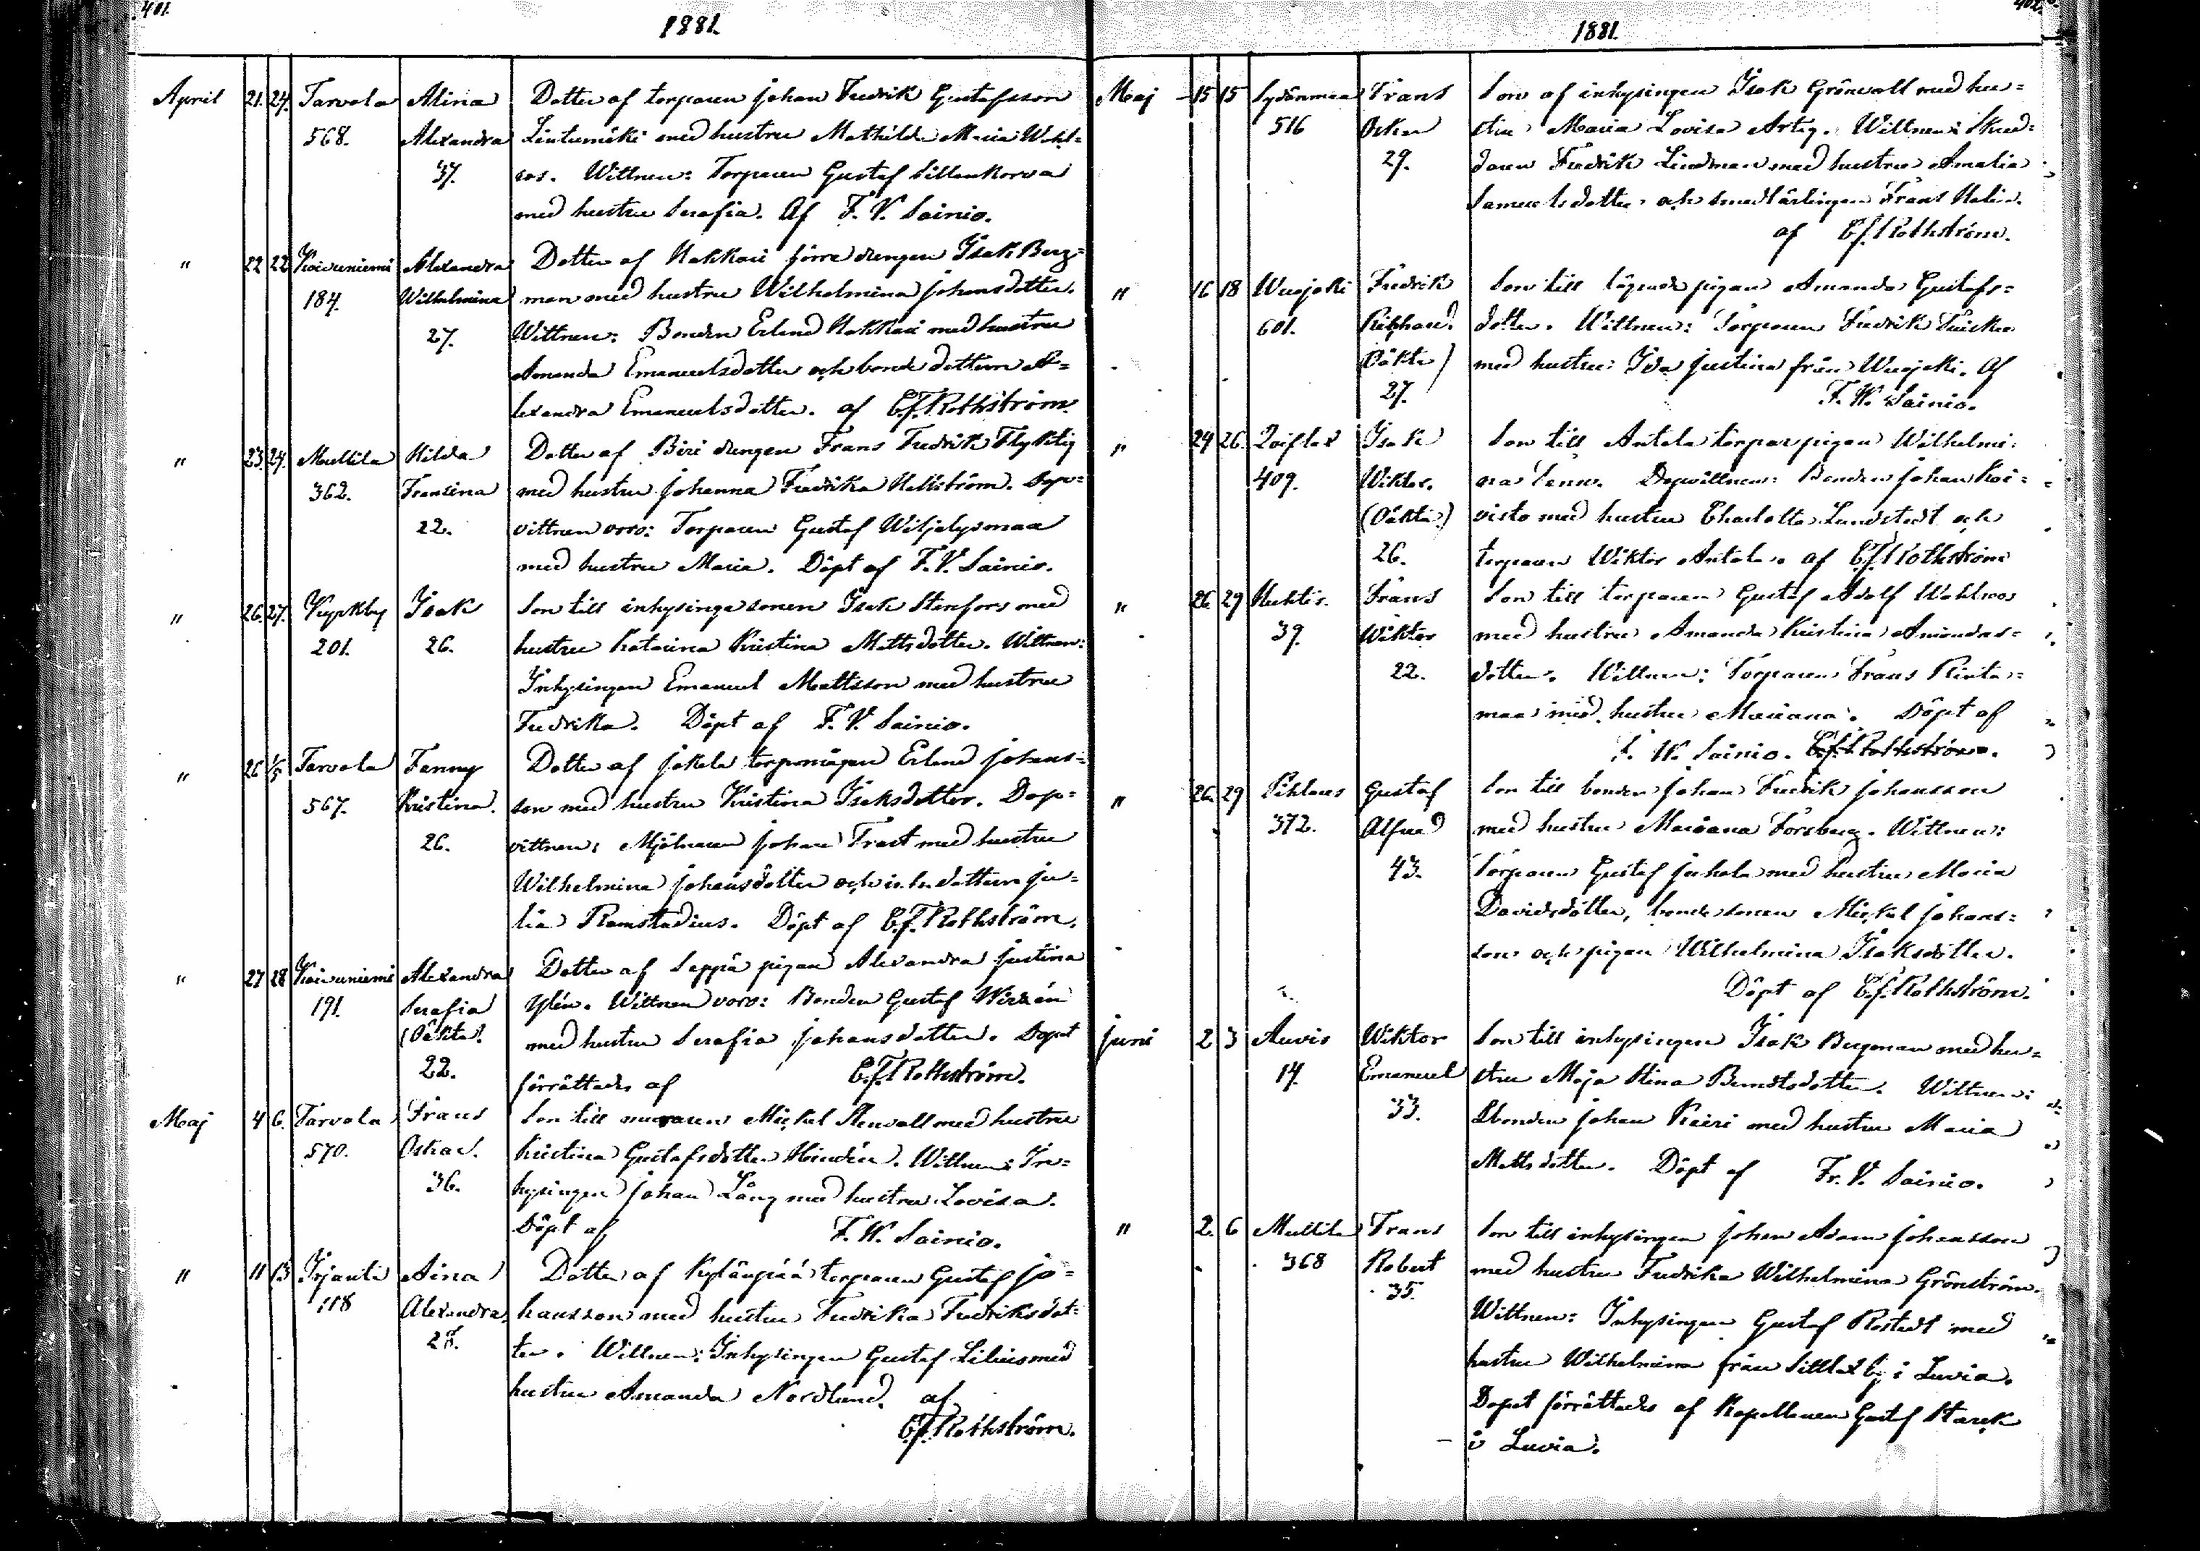 401.
1881.
April 21. 24. Tarvola Alina Dotter af torparen Johan Fredrik Gustafsson
568. Alexandra Lintumäki med hustru Mathilda Maria Wahl=
37. ros. Wittnen: Torparen Gustaf Sillankorva
med hustru Serafia. Af F. V. Sainio.
" 22 22 Koivuniemi Alexandra Dotter af Hakkari förre drengen Isak Berg=
184. Wilhelmina man med hustru Wilhelmina Johansdotter.
27. Wittnen: Bonden Erland Hakkari med hustru
Amanda Emanuelsdotter och bonde dottern A=
lexandra Emanuelsdotter. af C.J. Rothström.
" 23. 24. Mullila Hilda Dotter af Biri drengen Frans Fredrik Flyktig
362. Fransina med hustru Johanna Fredrika Hellström. Dop=
22. vittnen voro: Torparen Gustaf Wiljalysmaa
med hustru Maria. Döpt af F. V. Sainio.
" 26. 27. Kyrkby Isak Son till inhysinge sonen Isak Stenfors med
201. 26. hustru Katarina Kristina Mattsdotter. Wittnen:
Inhysingen Emanuel Mattsson med hustru
Fredrika. Döpt af F. V. Sainio.
" 26 1/5 Tarvola Fanny Dotter af Jokela torpmågen Erland Johans=
567. Kristina. son med hustru Kristina Isaksdotter. Dop=
26. vittnen: Mjölnaren Johan Trast med hustru
Wilhelmina Johansdotter och inh. dottern Ju=
lia Ramstadius. Döpt af C.J. Rothström.
" 27 28 Koivuniemi Alexandra Dotter af Seppä pigan Alexandra Justina
191. Serafia Ylén. Wittnen voro: Bonden Gustaf Wirzén
(Oäkta). med hustru Serafia Johansdotter. Dopet
22. förrättades af C.J. Rothström.
Maj 4 6. Tarvola Frans Son till muraren Mickel Stenvall med hustru
570. Oskar. Kristina Gustafsdotter Heindén. Wittnen: In=
36. hysingen Johan Lång med hustru Lovisa.
Döpt af F. W. Sainio.
" 11 13 Irjanti Aina Dotter af Kylänpää torparen Gustaf Jo=
118 Alexandra hansson med hustru Fredrika Fredriksdot=
28. ter. Wittnen: Inhysingen Gustaf Lilius med
hustru Amanda Nordlund. af
C.J. Rothström.
402.
1881.
Maj 15 15 Sydänmaa Frans Son af inhysingen Isak Grönvall med hu=
516 Oskar stru Maria Lovisa Artig. Wittnen: Skräd=
29. daren Fredrik Lindman med hustru Amalia
Samuelsdotter och smedlärlingen Frans Helin.
af C.J. Rothström.
" 16 18 Wuojoki Fredrik Son till lägende pigan Amanda Gustafs=
601. Rikhard. dotter. Wittnen: Torparen Fredrik Tuisku
(Oäkta) med hustru Ida Justina från Wuojoki. Af
27. F. W. Sainio.
" 24 26. Isak Son till Antola torparpigan Wilhelmi=
409. Wiktor. na Lenn. Dopvittnen: Bonden Johan Koi=
(Oäkta) visto med hustru Charlotta Lundstedt och
26. torparen Wiktor Antola. af C.J. Rothström
" 26 29 Huhtis. Frans Son till torparen Gustaf Adolf Wahlroos
39. Wiktor med hustru Amanda Kristina Amandas=
22. dotter. Wittnen: Torparen Frans Rinta=
maa med hustru Mariana. Döpt af
F. W. Sainio. C.J. Rothström.
" 26. 29 Pihlaus Gustaf Son till bonden Johan Fredrik Johansson
372. Alfred med hustru Mariana Forsberg. Wittnen:
43. Torparen Gustaf Juhola med hustru Maria
Davidsdotter, bonde sonen Mickel Johans=
son och pigan Wilhelmina Isaksdotter.
Döpt af C.J. Rothström.
Juni 2 3 Auvis Wiktor Son till inhysingen Isak Bergman med hu=
14. Emanuel stru Maja Stina Berndtsdotter. Wittnen:
33. Bonden Johan Keiri med hustru Maria
Mattsdotter. Döpt af Fr. V. Sainio.
" 2. 6 Mullila Frans Son till inhysingen Johan Adam Johansson
368 Robert med hustru Fredrika Wilhelmina Grönström.
35. Wittnen: Inhysingen Gustaf Rostedt med
hustru Wilhelmina från by i Luvia.
Dopet förrättades af Kapellanen Gustaf Starck
i Luvia.